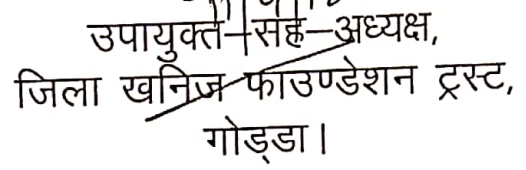 उपायुक्त–सह–अध्यक्ष,
जिला खनिज फाउण्डेशन ट्रस्ट,
गोड्डा।